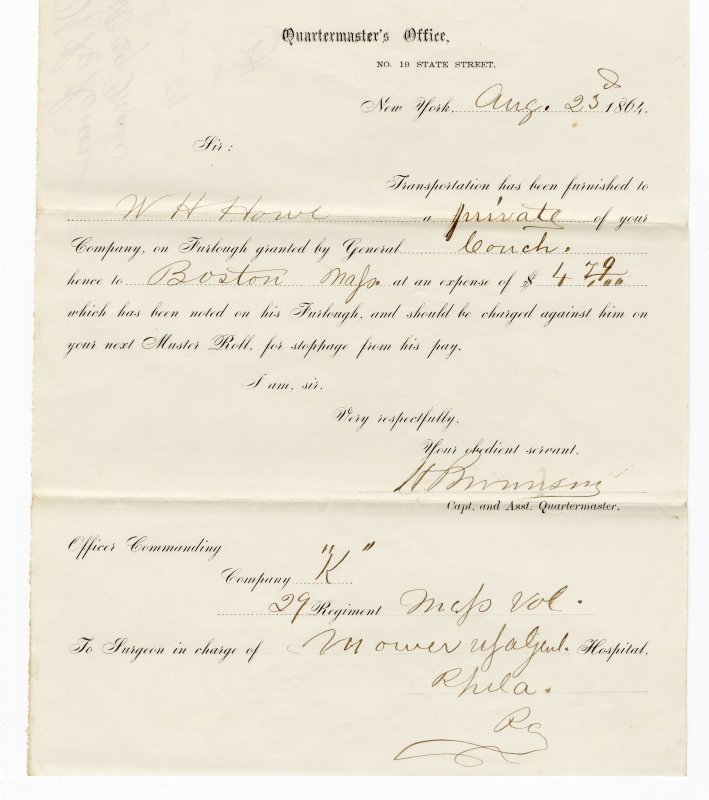 Quartermaster's Office,
NO. 19 STATE STREET.
New York, Aug. 23d 1864.
Sir:
Transportation has been furnished to
W H Howe a private of your
Company, on Furlough granted by General Couch.
hence to Boston Mass. at an expense of $ 4 79/100
which has been noted on his Furlough, and should be charged against him on
your next Muster Roll, for stoppage from his pay.
I am, sir,
Very respectfully,
Your obedient servant,
Capt. and Asst. Quartermaster.
Officer Commanding
Company "K"
29 Regiment Mass Vol.
To Surgeon in charge of Mower USA Genl. Hospital,
Phila.
Pa